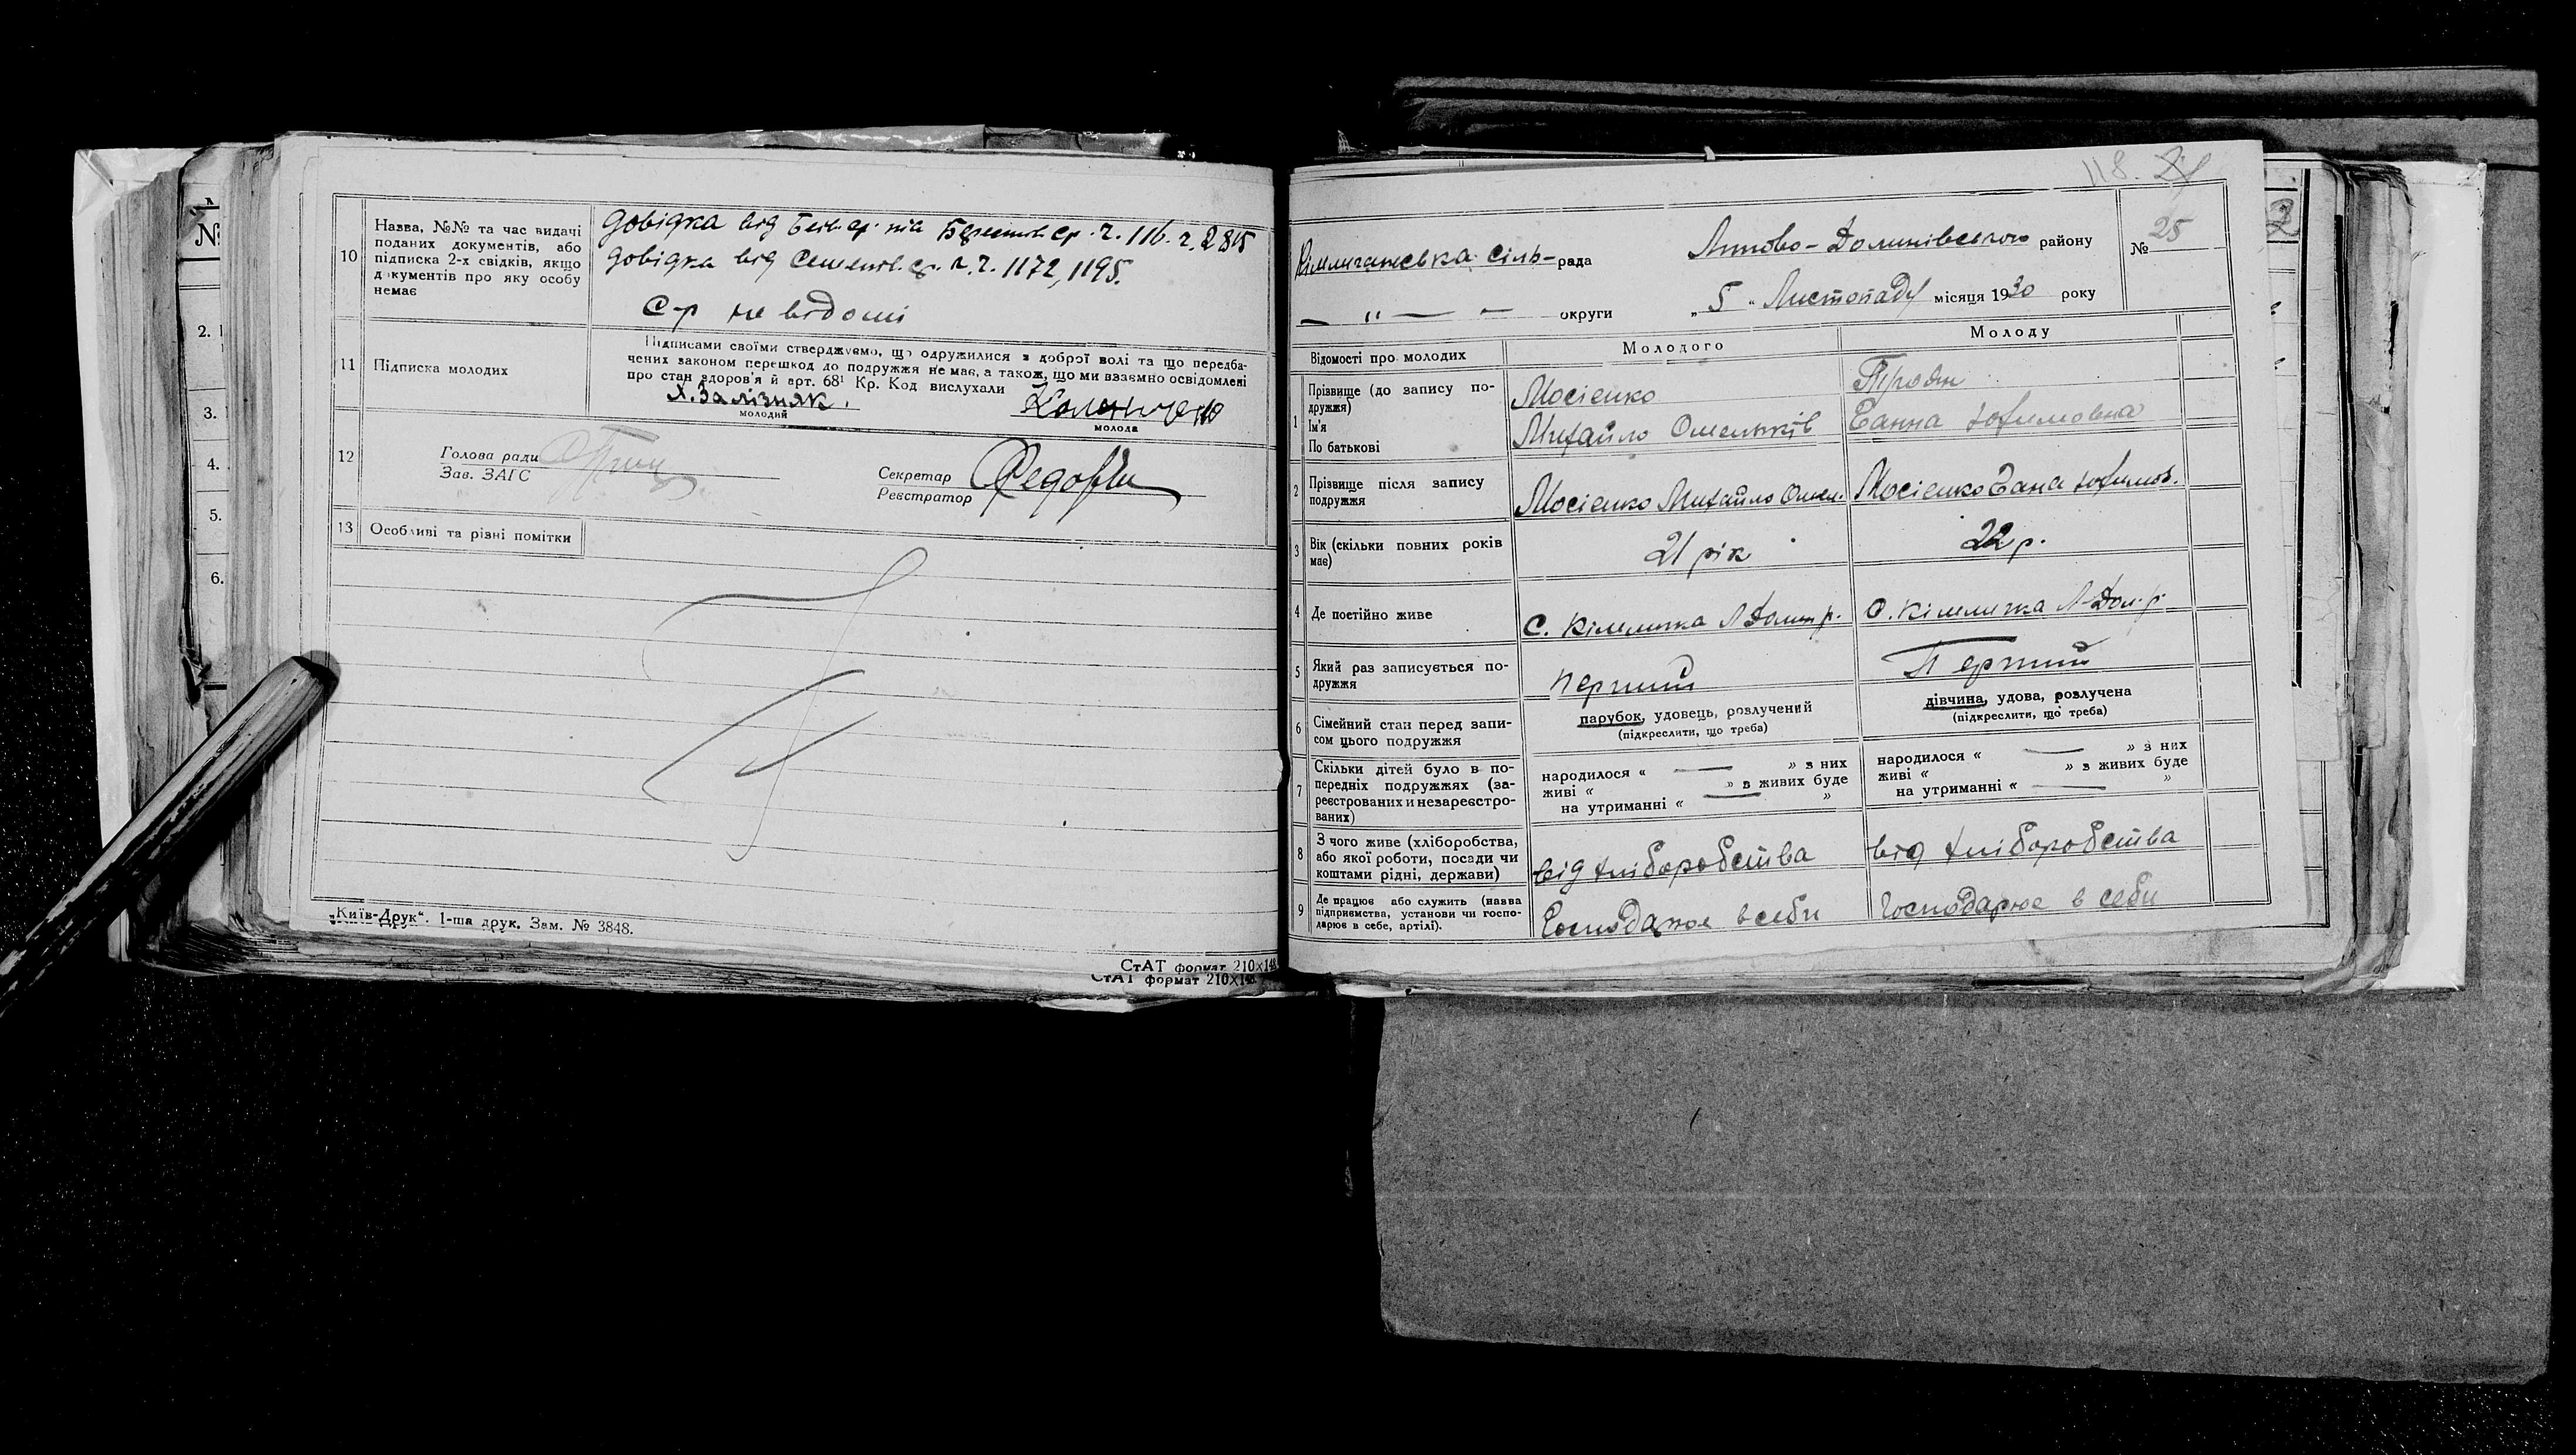 10
Назва, №№ та час видачі
поданих документів, або
підписка 2-х свідків, якщо
документів про яку особу
немає
довідка від ч. 116. ч. 2815
довідка від ч. ч. 1172, 1195.
С-р не відомі
11 Підписка молодих
Підписами своїми стверджуємо, що одружилися з доброї волі та що передба-
чених законом перешкод до подружжя не має, а також, що ми взаємно освідомлені
про стан здоров'я й арт. 68¹ Кр. Код вислухали
Х. Залізняк.
молодий
молода
12
Голова ради
Зав. ЗАГС
Секретар
Реєстратор
13 Особливі та різні помітки
„Київ-Друк“. 1-ша друк. Зам. № 3848.
СтАТ формат 210х148
СтАТ формат 210х148
№
2.
3.
4.
5.
6.
118.
сіль- рада
Липово-Долинівського району
№ 25
— „ — — округи
„ 5 “ Листопаду місяця 1930 року
Відомості про молодих
Молодого
Молоду
1
Прізвище (до запису по-
дружжя)
Ім'я
По батькові
Мосієнко
Михайло Омельків
Ганна Юхимовна
2
Прізвище після запису
подружжя
Мосієнко Михайло Омел.
Мосієнко Гана Юхимов.
3
Вік (скільки повних років
має)
21 рік
22 р.
4 Де постійно живе
С. Кімличка Л Долин р.
С. Кімличка Л-Дол. р.
5
Який раз записується по-
дружжя
перший
Перший
6
Сімейний стан перед запи-
сом цього подружжя
парубок, удовець, розлучений
(підкреслити, що треба)
дівчина, удова, розлучена
(підкреслити, що треба)
7
Скільки дітей було в по-
передніх подружжях (за-
реєстрованих и незареєстро-
ваних)
народилося « — » з них
живі « » з живих буде
на утриманні « — »
народилося « — » з них
живі « » з живих буде
на утриманні « — »
8
З чого живе (хліборобства,
або якої роботи, посади чи
коштами рідні, держави)
від хліборобства
від хліборобства
9
Де працює або служить (назва
підприємства, установи чи госпо-
дарює в себе, артілі).
Господарює в себи
Господарює в себи